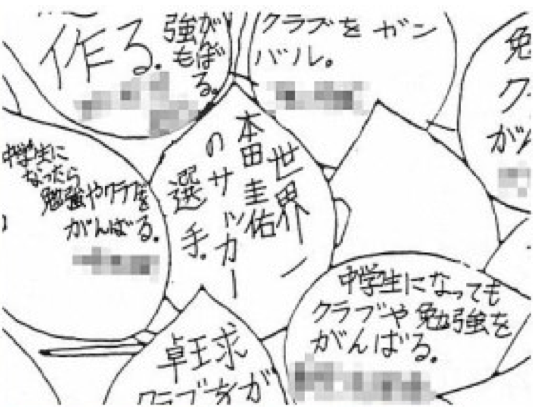 作る。
がんばる。
強も
クラブを ガン
バル。
ク
が
中学生に
なったら
勉強やクラブを
がんばる。
世界一
本田圭佑
のサッカー
選手。
中学生になっても
クラブや勉強を
がんばる。
卓球
クラブをが